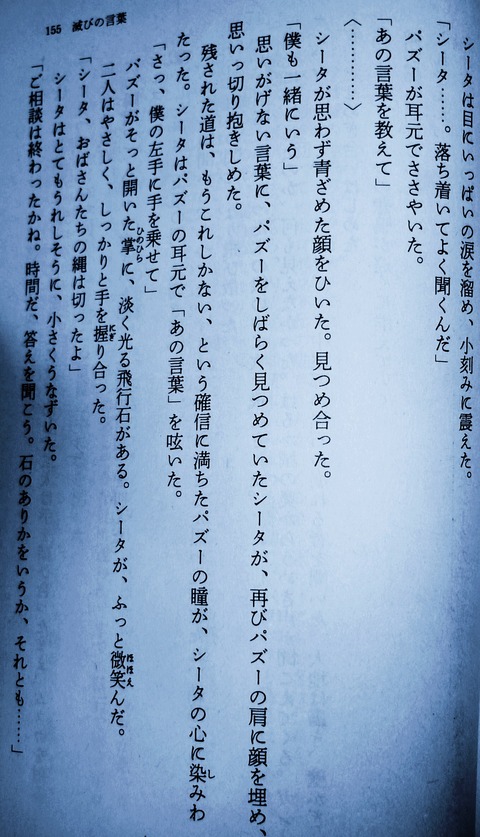 155 滅びの言葉
シータは目にいっぱいの涙を溜め、小刻みに震えた。
「シータ……。落ち着いてよく聞くんだ」
パズーが耳元でささやいた。
「あの言葉を教えて」
〈…………〉
シータが思わず青ざめた顔をひいた。見つめ合った。
「僕も一緒にいう」
思いがけない言葉に、パズーをしばらく見つめていたシータが、再びパズーの肩に顔を埋め、
思いっ切り抱きしめた。
残された道は、もうこれしかない、という確信に満ちたパズーの瞳が、シータの心に染みわ
たった。シータはパズーの耳元で「あの言葉」を呟いた。
「さっ、僕の左手に手を乗せて」
パズーがそっと開いた掌に、淡く光る飛行石がある。シータが、ふっと微笑んだ。
二人はやさしく、しっかりと手を握り合った。
「シータ、おばさんたちの縄は切ったよ」
シータはとてもうれしそうに、小さくうなずいた。
「ご相談は終わったかね。時間だ、答えを聞こう。石のありかをいうか、それとも……」